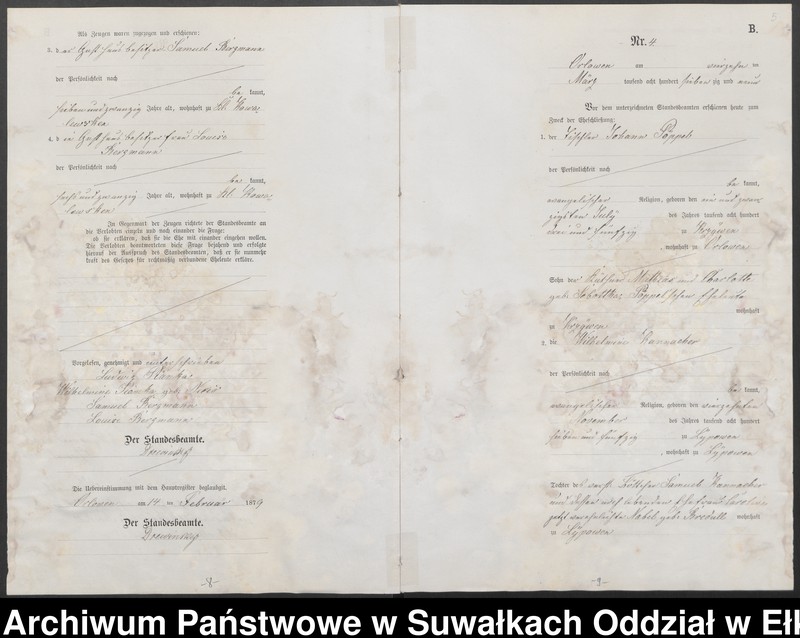 Als Zeugen waren zugezogen und erschienen:
3. der Gasthausbesitzer Samuel Bergmann
der Persönlichkeit nach
be kannt,
sieben und zwanzig Jahre alt, wohnhaft zu Kl.
4. die Gasthausbesitzerfrau Louise
Bergmann
der Persönlichkeit nach
be kannt,
sechs und zwanzig Jahre alt, wohnhaft zu Kl.
In Gegenwart der Zeugen richtete der Standesbeamte an
die Verlobten einzeln und nach einander die Frage:
ob sie erklären, daß sie die Ehe mit einander eingehen wollen.
Die Verlobten beantworteten diese Frage bejahend und erfolgte
hierauf der Ausspruch des Standesbeamten, daß er sie nunmehr
kraft des Gesetzes für rechtmäßig verbundene Eheleute erkläre.
Vorgelesen, genehmigt und unterschrieben
Ludwig
Wilhelmine geb.
Samuel Bergmann
Louise Bergmann
Der Standesbeamte.
Die Uebereinstimmung mit dem Hauptregister beglaubigt.
Orlowen am 14 ten Februar 1879
Der Standesbeamte.
-8-
B.
Nr. 4
Orlowen am vierzehn ten
März tausend acht hundert sieben zig und neun
Vor dem unterzeichneten Standesbeamten erschienen heute zum
Zweck der Eheschließung:
1. der Tischler Johann Poppel
der Persönlichkeit nach
be kannt,
evangelischer Religion, geboren den ein und zwan-
zigsten July des Jahres tausend acht hundert
drei und fünfzig zu
, wohnhaft zu Orlowen
Sohn des und Charlotte
geb. Poppelschen Eheleute
wohnhaft
zu
2. die Wilhelmine Kannacher
der Persönlichkeit nach
be kannt,
evangelischer Religion, geboren den vierzehnten
November des Jahres tausend acht hundert
sieben und fünfzig zu Lypowen
, wohnhaft zu Lypowen
Tochter des verst. Böttcher Samuel Kannacher
und dessen noch lebenden Ehefrau Caroline
jetzt verehelichte geb. wohnhaft
zu Lypowen
-9-
Archiwum Państwowe w Suwałkach Oddział w Eł